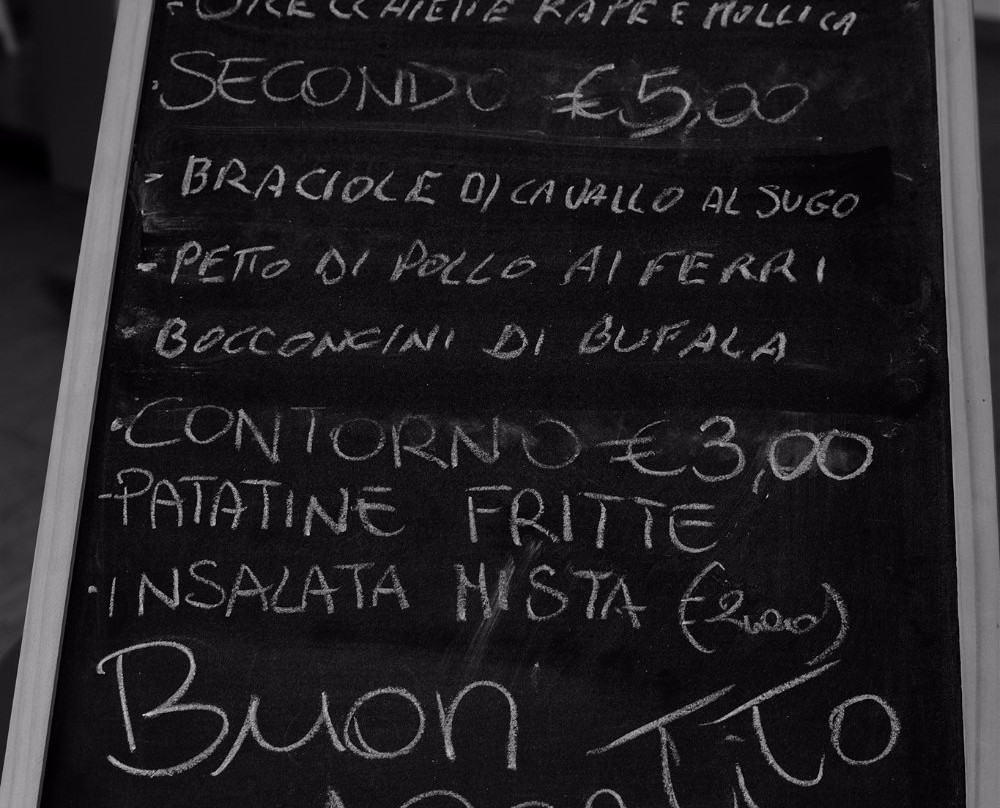 - ORECCHIETTE RAPE E MOLLICA
. SECONDO €5,00
- BRACIOLE DI CAVALLO AL SUGO
- PETTO DI POLLO AI FERRI
BOCCONCINI DI BUFALA
. CONTORNO €3,00
- PATATINE FRITTE
. INSALATA MISTA (€2,00)
Buon
APPETITO